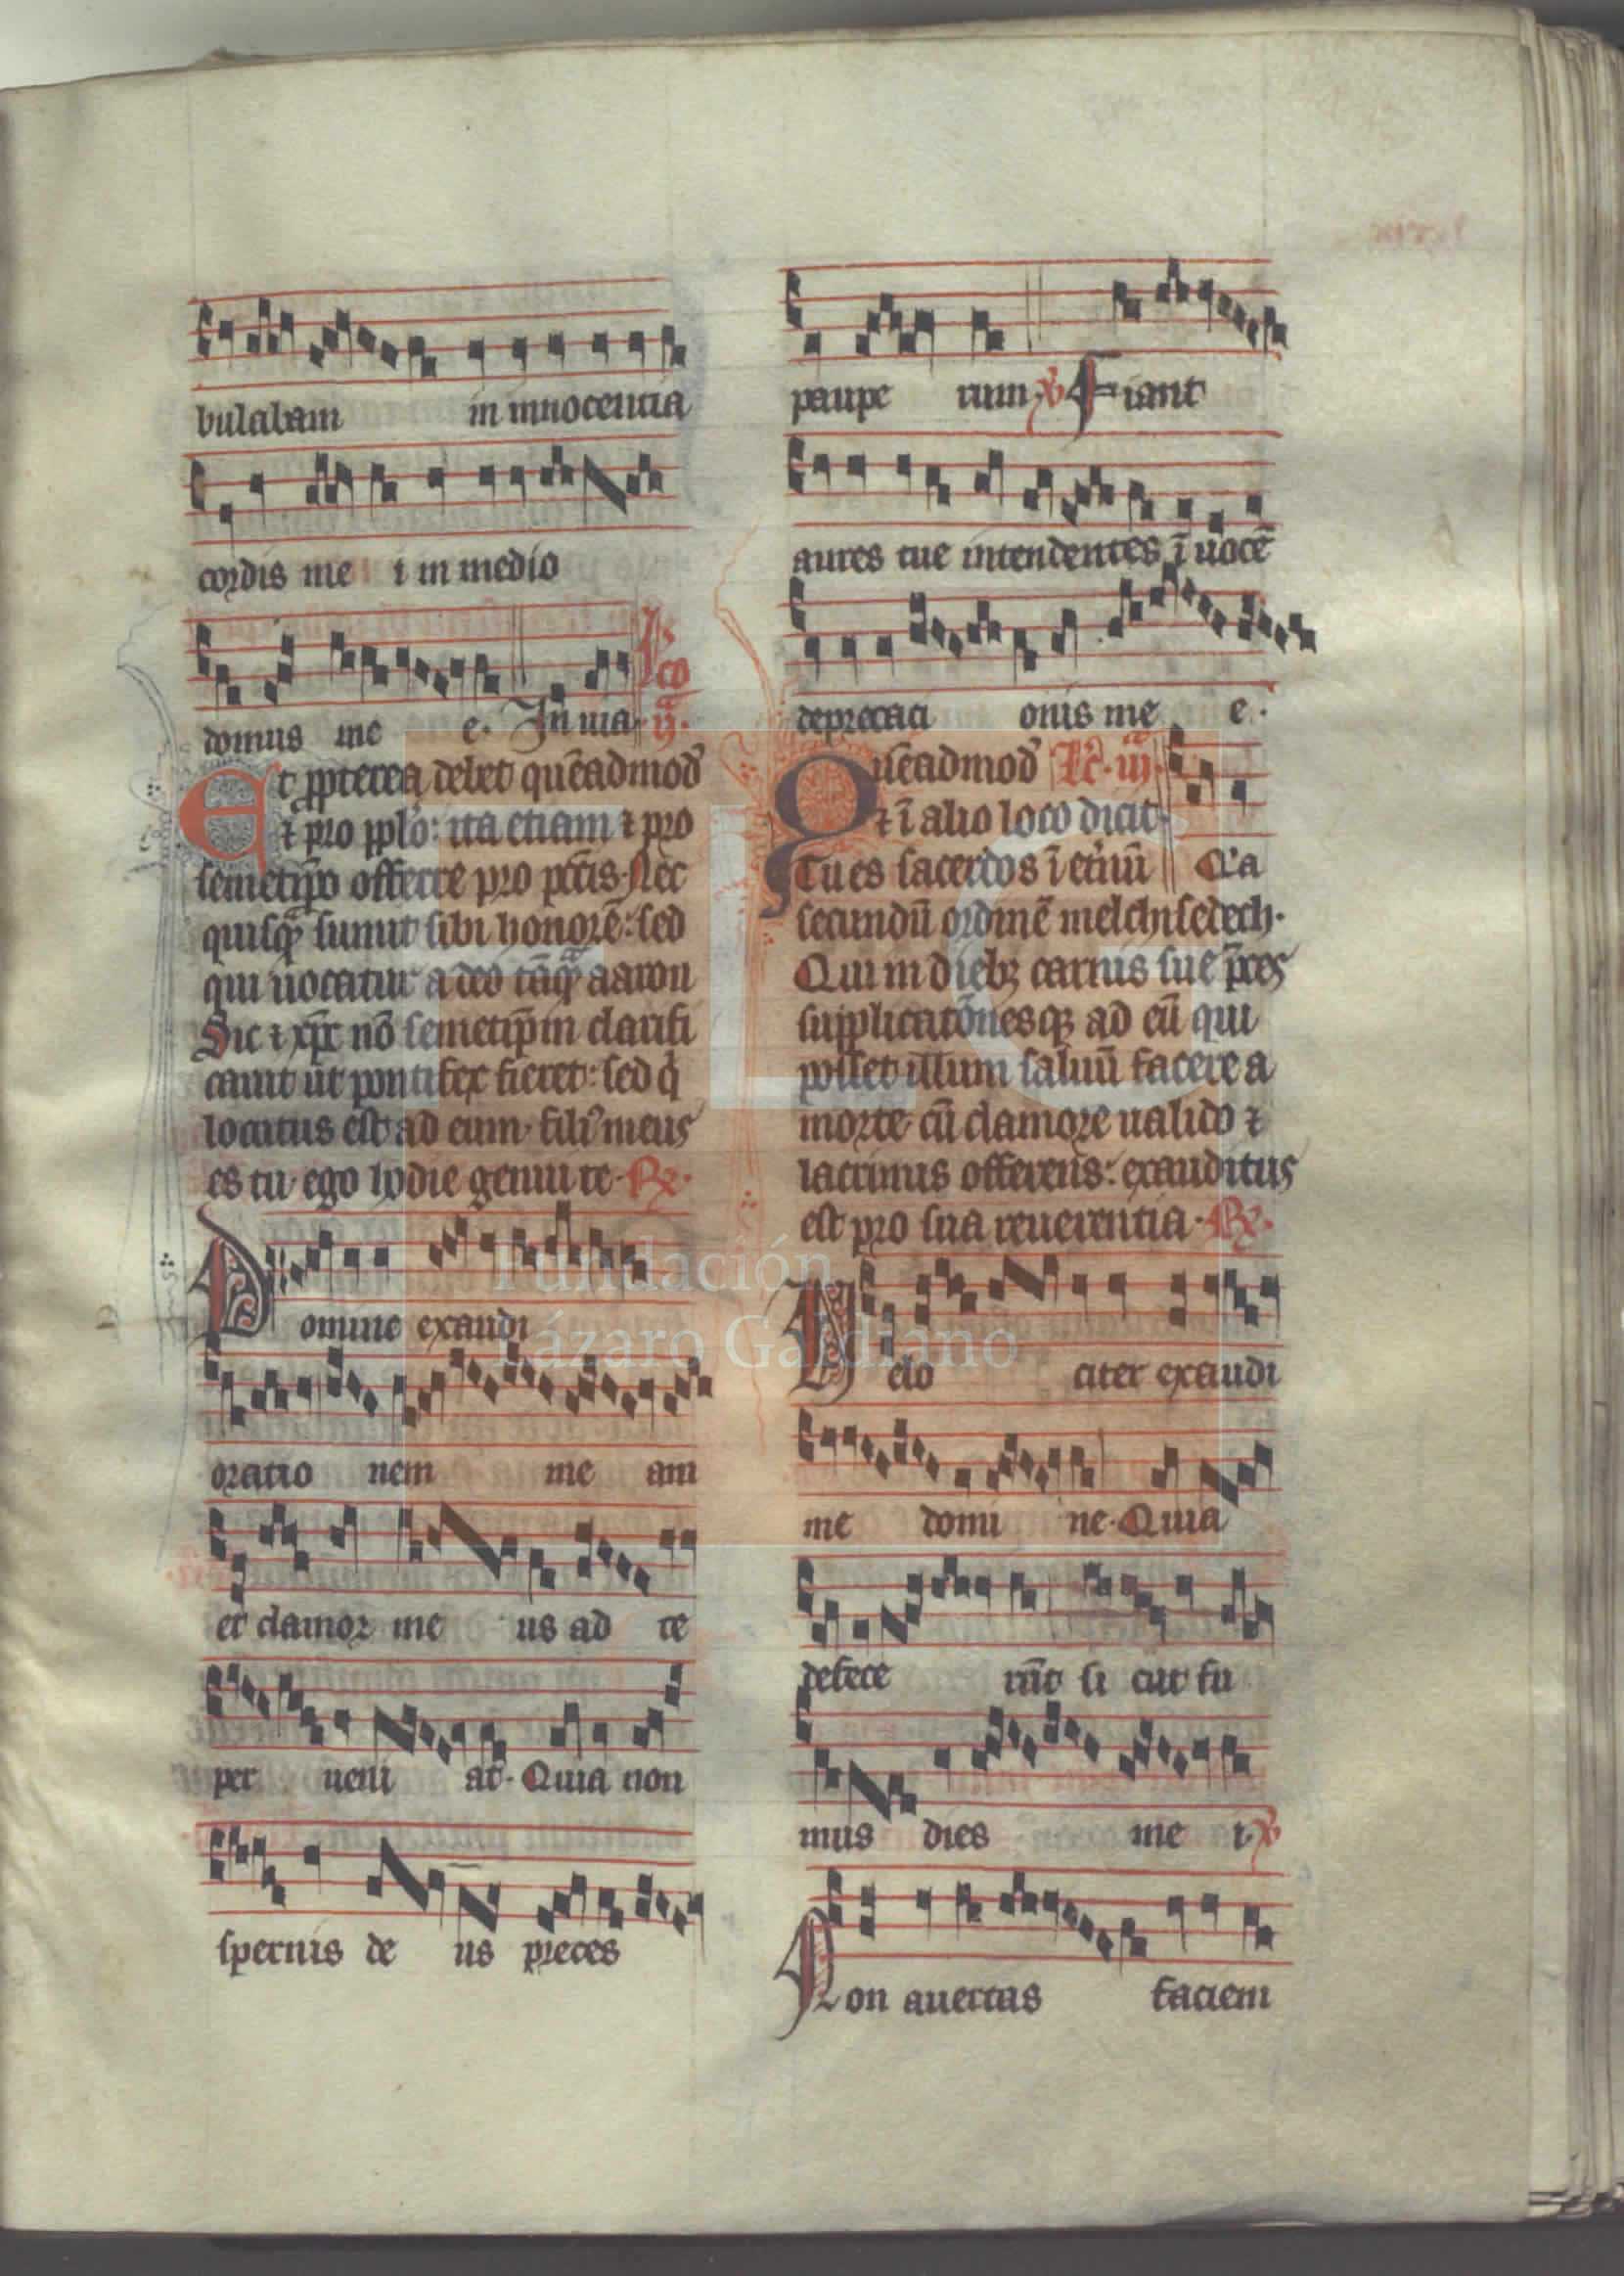 bulabam in innocencia
cordis me i in medio
domus me e. In ma. Lco
ij.
Et ꝓpterea debet quēadmod̄
⁊ pro pplo: ita etiam ⁊ pro
semetip̄o offerre pro pctīs. Nec
quisq̄ sumit sibi honorē: sed
qui uocatur a deo tāq̄ aaron
Sic ⁊ xp̄c nō semetip̄m clarifi
cauit ut pontifex fieret: sed q̄
locutus est ad eum. filiꝰ meus
es tu. ego hodie genui te. R̄.
Domine exaudi
oratio nem me am
et clamor me us ad te
per ueni at. Quia non
spernis de us preces
paupe rum. ℣ Fiant
aures tue intendentes ī uocē
deprecaci onis me e.
Quēadmod̄ Lc̄. iij.
⁊ ī alio loco dicit
Tu es sacerdos ī et̄nū Q'a
secundū ordinē melchisedech.
Qui in diebꝫ carnis sue p̄ces
supplicatōnesqꝫ ad eū qui
posset illum saluū facere a
morte cū clamore ualido ⁊
lacrimis offerens: exauditus
est pro sua reuerentia. R̄.
Velo citer exaudi
me domi ne. Quia
defece rūt si cut fu
mus dies me i ℣
Non auertas faciem
FLG
Fundación
Lázaro Galdiano